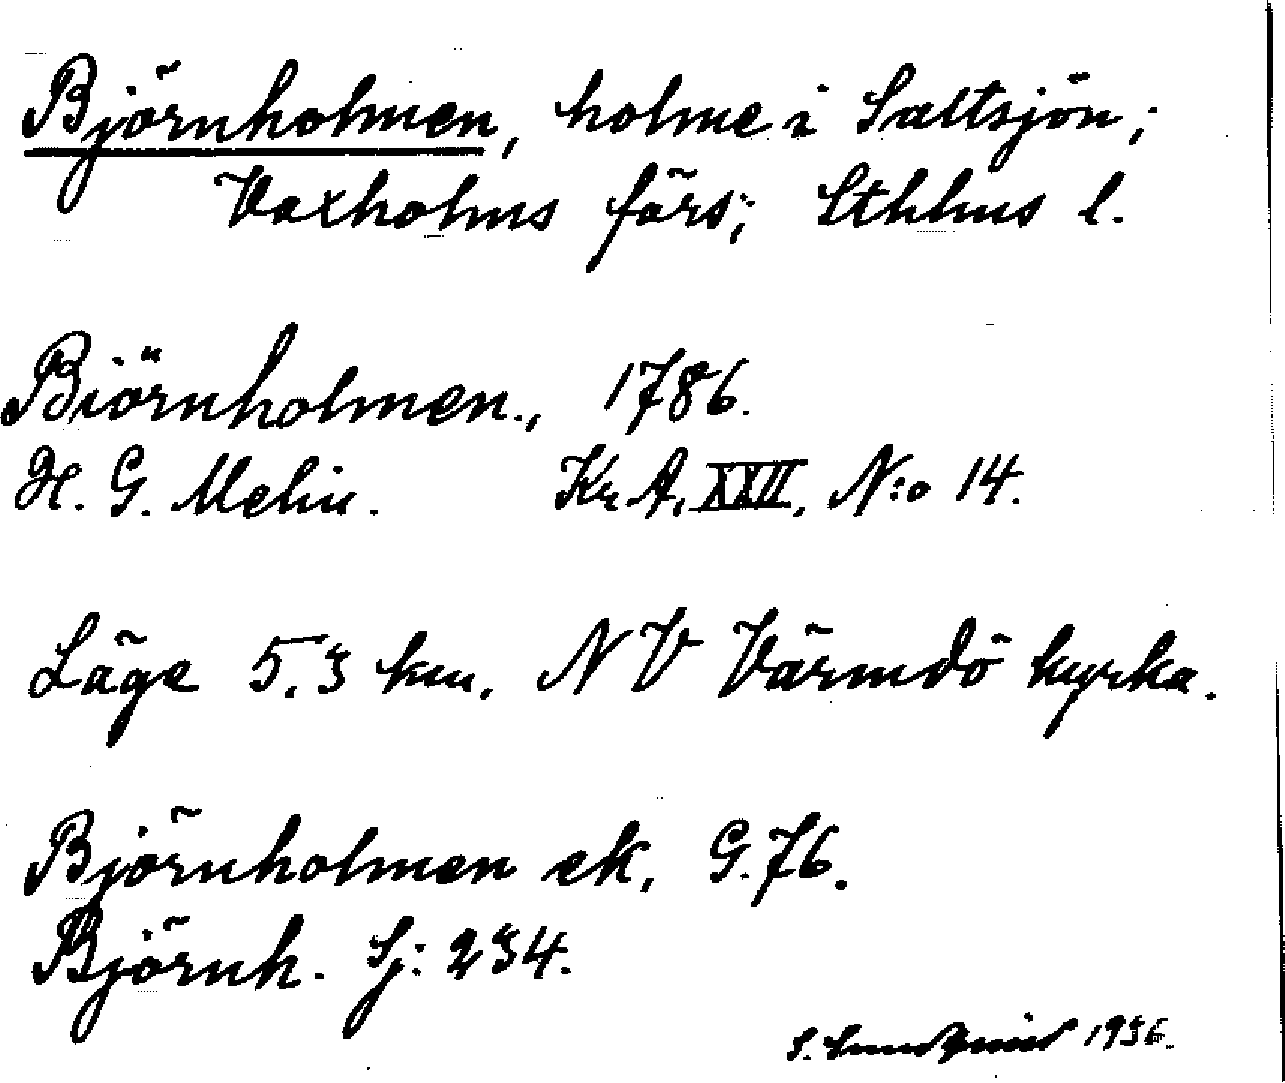 Björnholmen, holme i Saltsjön;
Vaxholms förs; Sthlms l.
Biörnholmen., 1786.
H. G. Melin. Kr. A, XXII, N:o 14.
Läge 5.3 km. NV Värmdö kyrka.
Björnholmen ek, G.76.
Björnh. Sj: 234.
S. Sundqvist 1936.